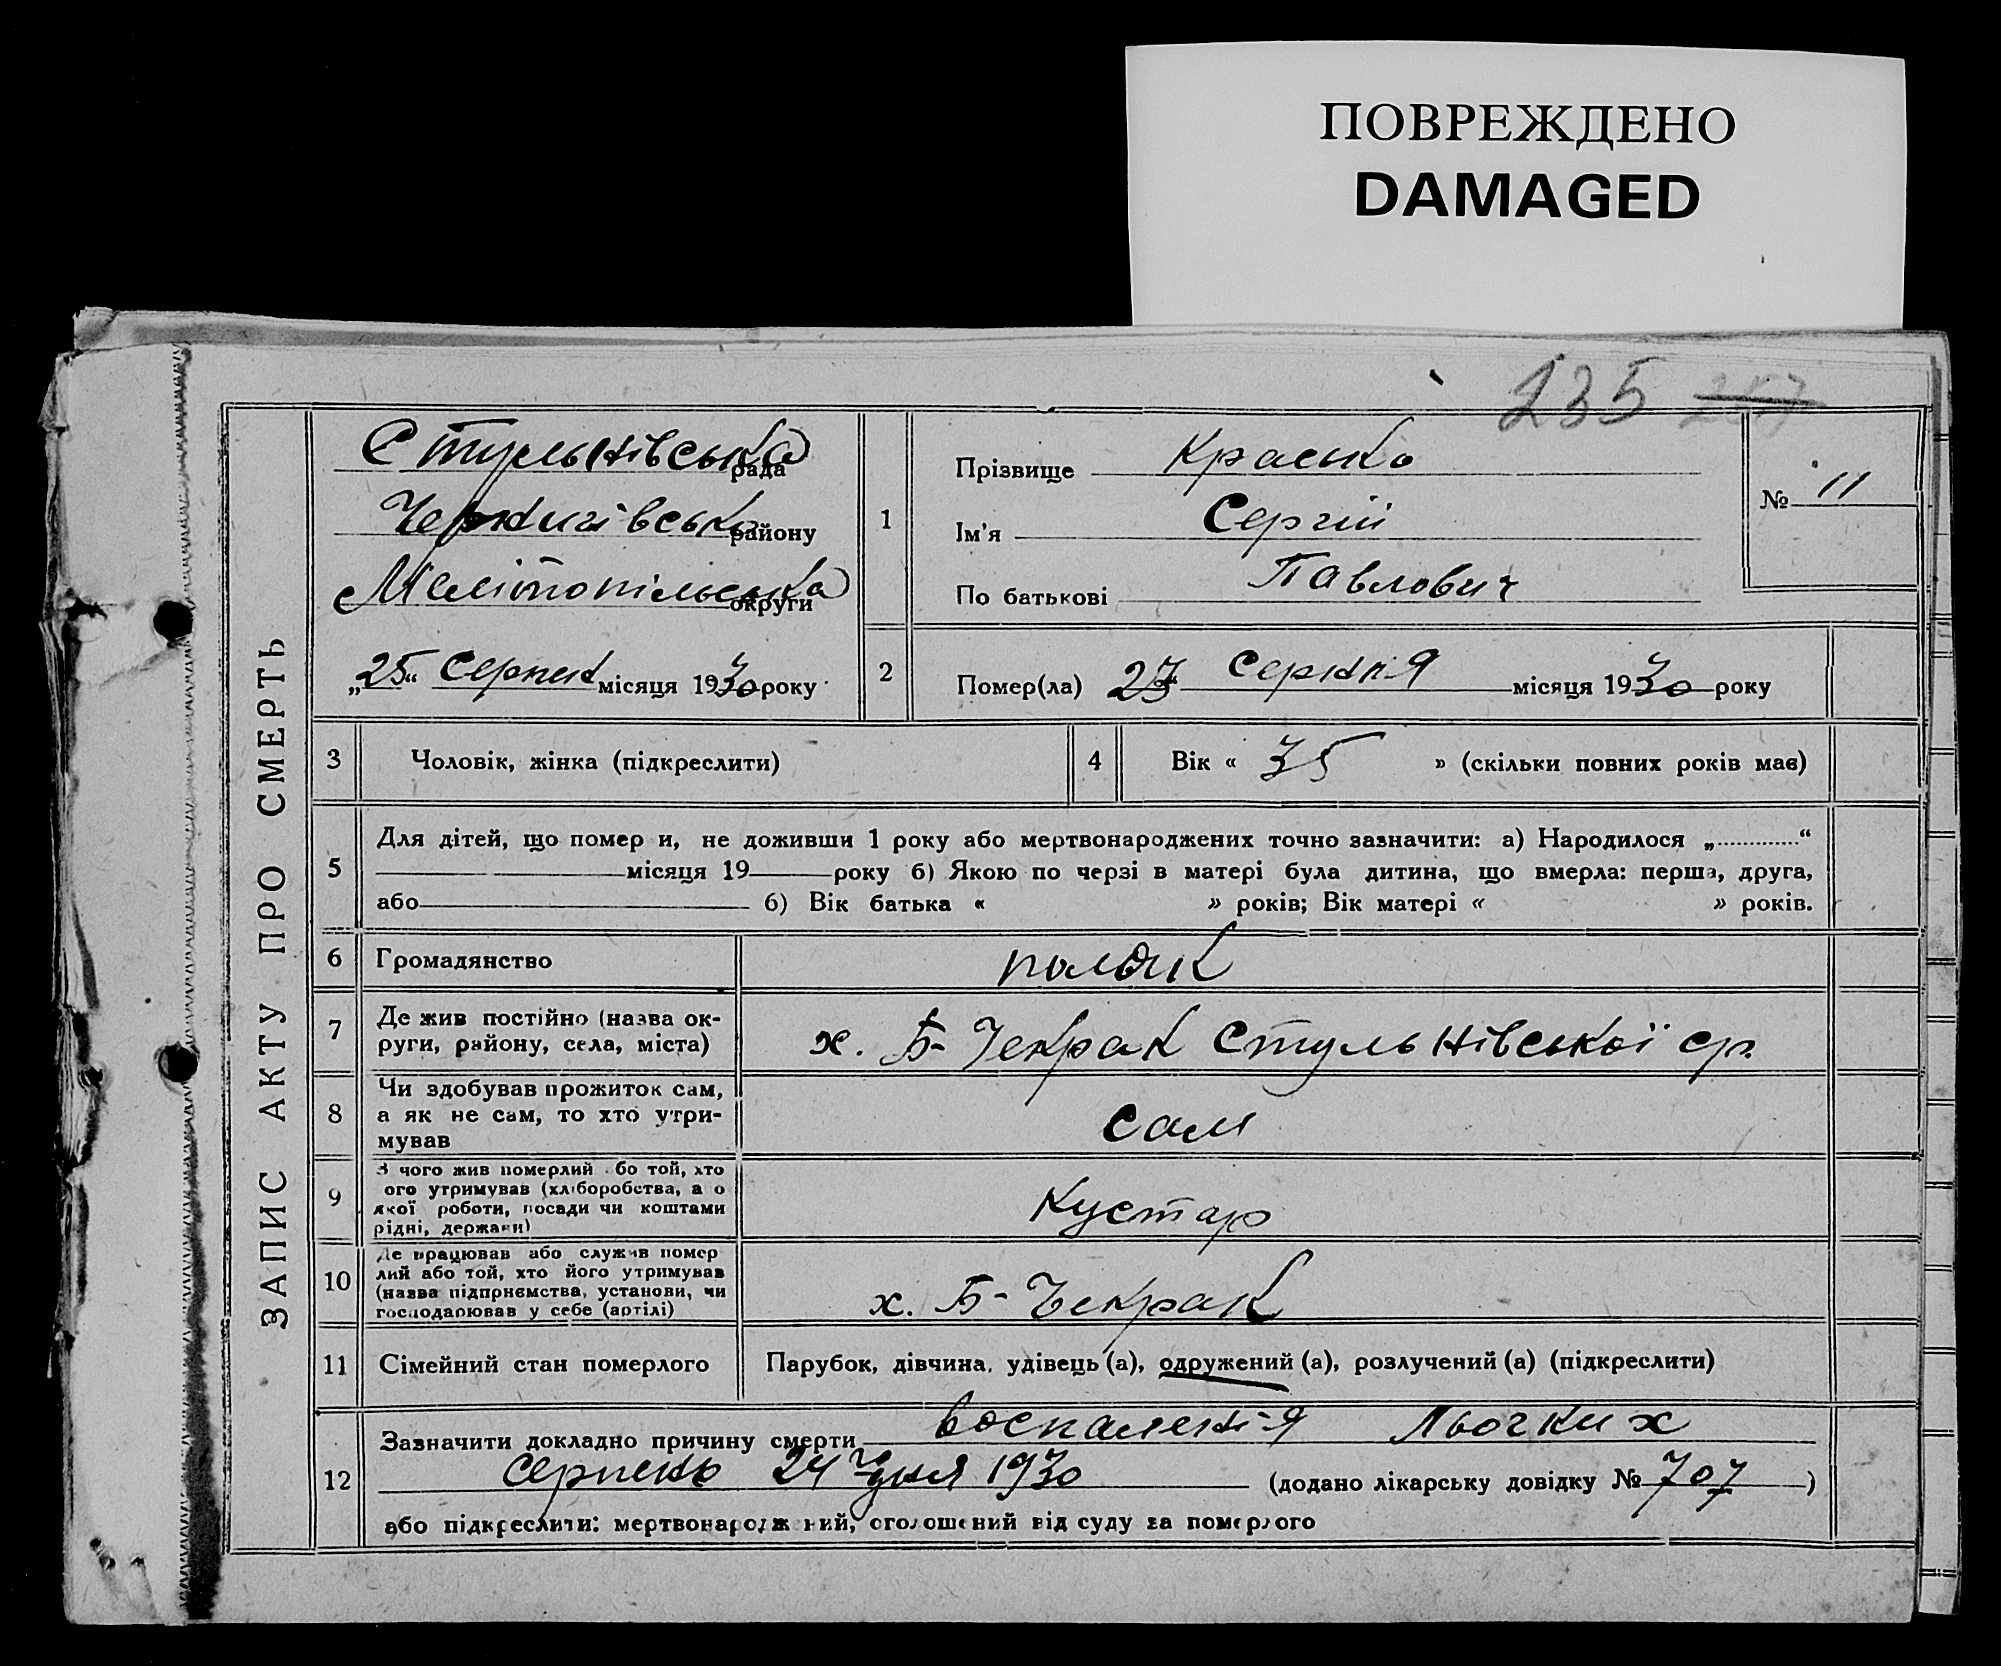 ПОВРЕЖДЕНО
DAMAGED
235 257
ЗАПИС АКТУ ПРО СМЕРТЬ
Стульнівська рада
Чернигівська району
Мелітопільська округи
„25“ Серпня місяця 1930 року
1
Прізвище Красько
Ім'я Сергій
По батькові Павлович
№ 11
2
Помер(ла) 23 Серпня місяця 1930 року
3 Чоловік, жінка (підкреслити)
4 Вік « 35 » (скільки повних років має)
5
Для дітей, що помер и, не доживши 1 року або мертвонароджених точно зазначити: а) Народилося „ “
місяця 19 року б) Якою по черзі в матері була дитина, що вмерла: перша, друга,
або б) Вік батька « » років; Вік матері « » років.
6 Громадянство
поляк
7
Де жив постійно (назва ок-
руги, району, села, міста)
х. Б-Чекрак Стульнівської ср.
8
Чи здобував прожиток сам,
а як не сам, то хто утри-
мував
сам
9
З чого жив померлий бо той, хто
ого утримував (хліборобства, а о
якої роботи, посади чи коштами
рідні, держави)
Кустар
10
Де працював або служив помер
лий або той, хто його утримував
(назва підприємства, установи, чи
господарював у себе (артілі)
х. Б-Чекрак
11 Сімейний стан померлого
Парубок, дівчина, удівець (а), одружений (а), розлучений (а) (підкреслити)
12
Зазначити докладно причину смерти воспаленія льогких
серпень 24 дня 1930 (додано лікарську довідку № 707 )
або підкреслити: мертвонародж ний, оголошений від суду за померлого